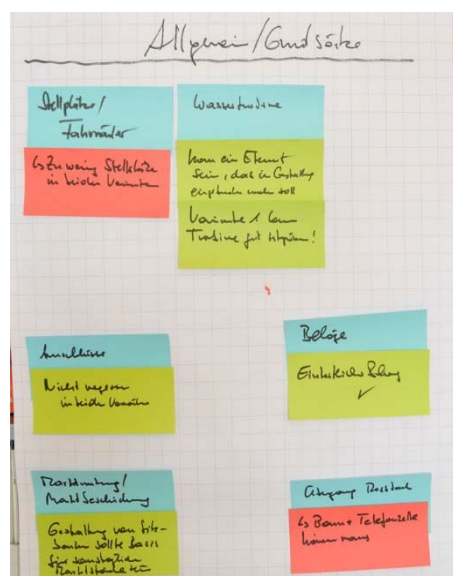 Allgemein/Grundsätze
Stellplätze/
Fahrräder
↳ Zu wenig Stellplätze
in beiden Varianten
Wasserturbine
kann ein Element
sein, das in Gestaltung
eingebunden werden soll
Variante 1 kann
Turbine gut integrieren!
Anschlüsse
Nicht vergessen
in beiden Varianten
Beläge
Einheitlicher Belag
✓
Marktnutzung/
Marktbeschickung
Gestaltung von Sitz-
bänken sollte Basis
für
Marktstände sein
↳ Baum + Telefonzelle
können raus